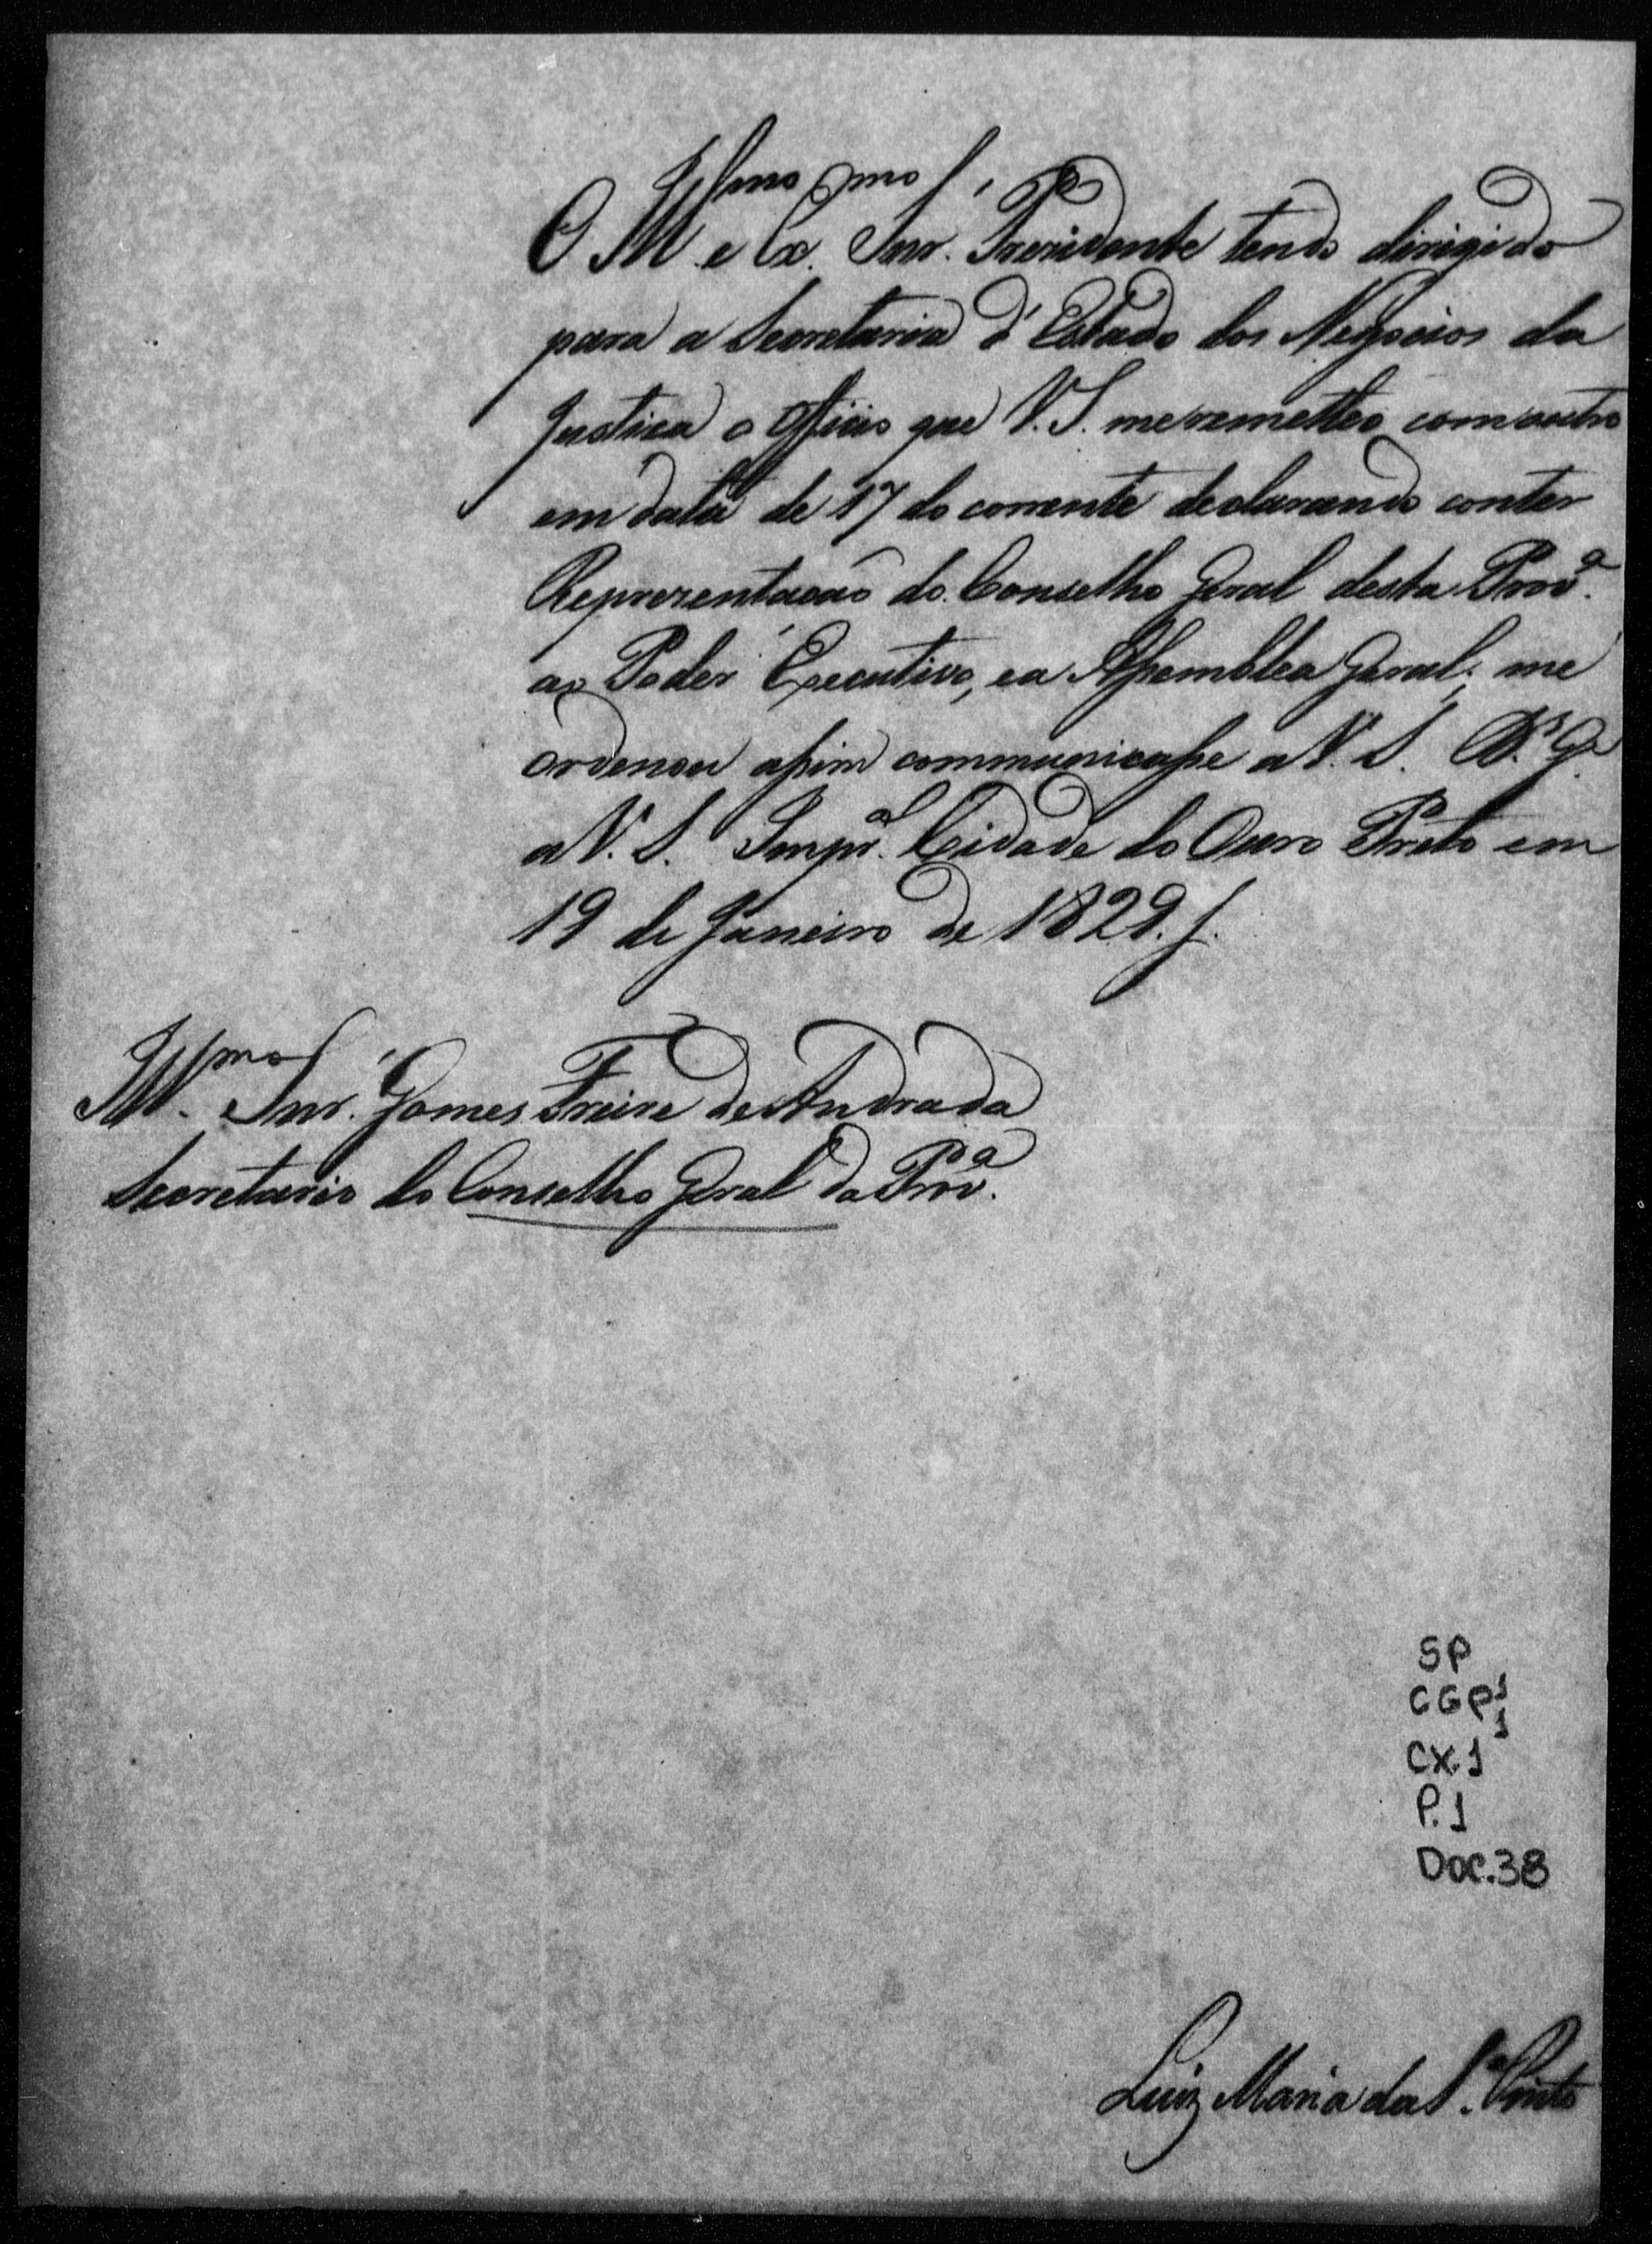 O Ill.mo e Ex.mo Snr. Prezidente tendo dirigido
para a Secretaria d'Estado dos Negocios da
Justica o Officio que V. S. me remetteo com outro
em data de 17 do corrente declarando conter
Reprezentacaõ do Conselho Geral desta Prov.a
ao Poder Executivo, e a Assemblea Geral; me
ordenou assim communicasse a V. S. D.s G.e
a V. S. Imp.al Cidade do Ouro Preto em
19 de Janeiro de 1829.
Ill.mo Snr. Gomes Freire de Andrada
Secretario do Conselho Geral da Prov.a
SP
CGP1
1
CX.1
P.1
Doc.38
Luiz Maria da S.a Pinto